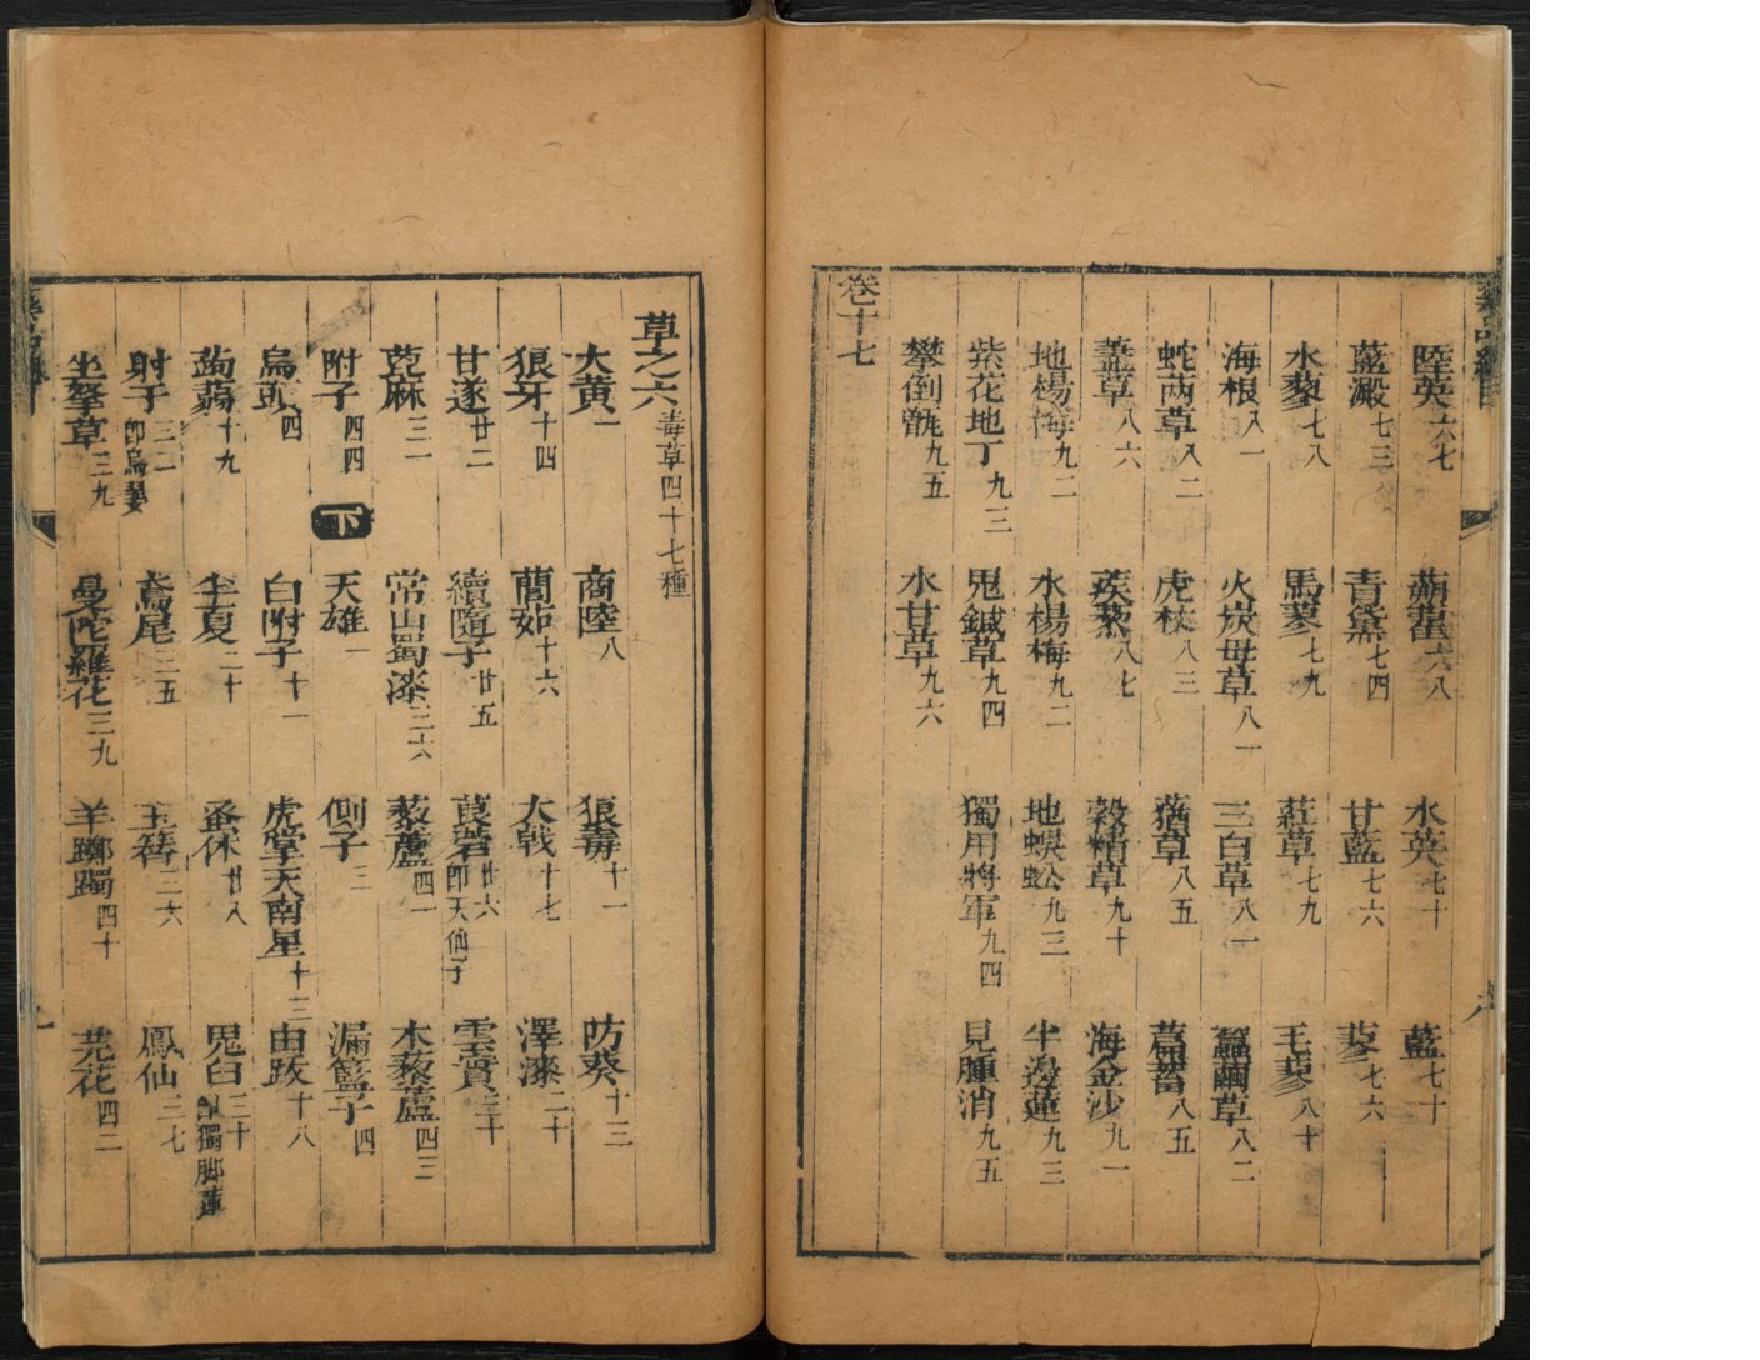 陸英六七 蒴藋六八 水英七十 藍七十
藍澱七三 青黛七四 甘藍七六 蓼七六
水蓼七八 馬蓼七九 葒草七九 毛蓼八十
海根八一 火炭母草八一 三白草八一 蠶繭草八二
蛇䓖草八二 虎杖八三 蕕草八五 萹蓄八五
藎草八六 蒺藜八七 穀精草九十 海金沙九一
地楊梅九二 水楊梅九二 地蜈蚣九三 半邊蓮九三
紫花地丁九三 鬼鍼草九四 獨用將軍九四 見腫消九五
攀倒甑九五 水甘草九六
卷十七
草之六毒草四十七種
大黃一 商陸八 狼毒十一 防葵十三
狼牙十四 䕡茹十六 大戟十七 澤漆二十
甘遂廿二 續隨子廿五 莨菪廿六即天仙子 雲實三十
蓖麻三一 常山蜀漆三六 藜蘆四一 木藜蘆四三
附子四四 下 天雄一 側子三 漏籃子四
烏頭四 白附子十一 虎掌天南星十三 由跋十八
蒟蒻十九 半夏二十 蚤休廿八 鬼臼三十即獨腳蓮
射干三二即烏翣 鳶尾三五 玉簪三六 鳳仙三七
坐拏草三九 曼陀羅花三九 羊躑躅四十 芫花四二